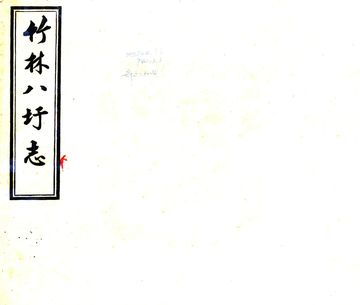 竹林八圩志